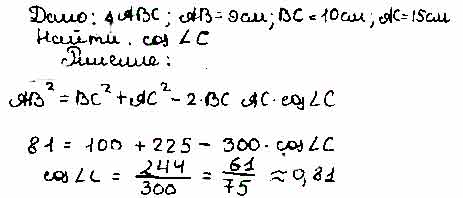 Дано: △ABC; AB = 9см; BC = 10см; AC = 15см
Найти: cos ∠C
Решение:
AB² = BC² + AC² - 2·BC AC·cos∠C
81 = 100 + 225 - 300·cos∠C
cos∠C = 244/300 = 61/75 ≈ 0,81